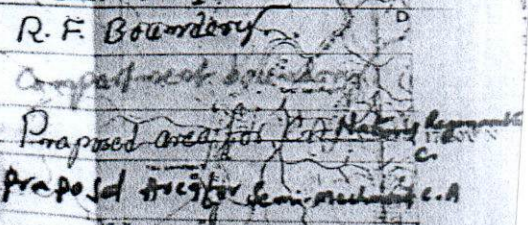 D
R. F. Boundery
Compartment boundary
Proposed area for Natural Regenerat
C.
Proposed Area for Semi-mechanised C.A